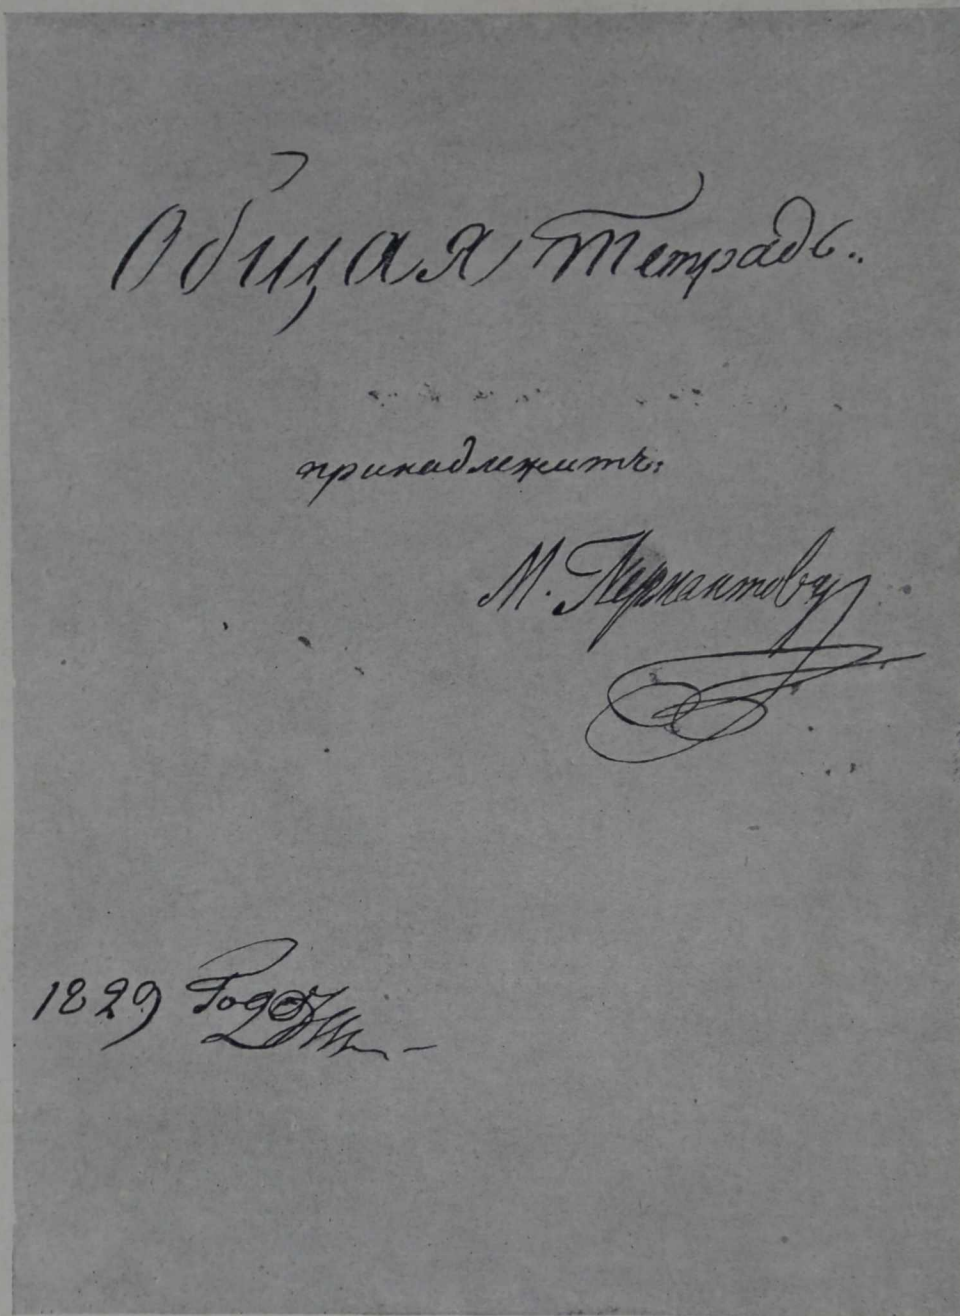 Общая Тетрадь..
принадлежитъ:
М. Лермантову
1829 Года